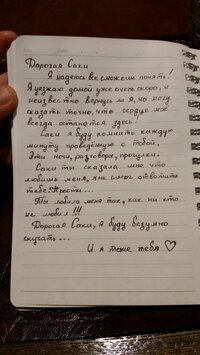 Дорогая Саки
Я надеюсь все сможешь понять!
Я уезжаю домой уже очень скоро, и
неизвестно вернусь ли я, но могу
сказать точно, что сердце моё
всегда останется здесь.
Саки я буду помнить каждую
минуту проведённую с тобой.
Эти ночи, разговоры, прогулки.
Саки ты сказала мне что
любишь меня, я не смог ответить
тебе. Прости...
Ты любила меня так, как ни кто
не любил!!!
Дорогая Саки, я буду безумно
скучать...
И я тоже тебя ♡